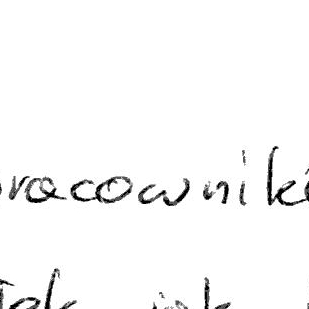 pracownikó
Tak jak